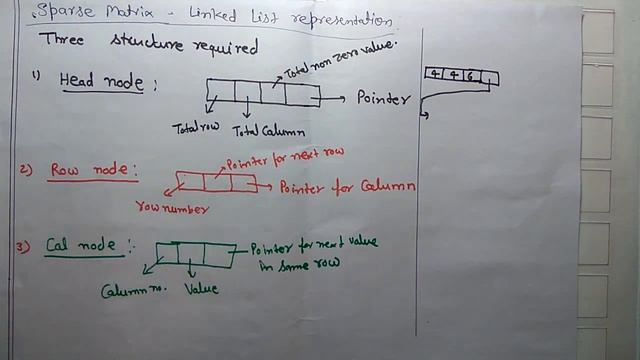 Sparse Matrix - Linked List representation
Three structure required
1) Head node :
Total non zero value.
Pointer
Total row
Total Column
4 4 6
2) Row node :
Pointer for next row
Pointer for Column
row number
3) Cal node :-
Pointer for next value
in same row
Column no.
Value